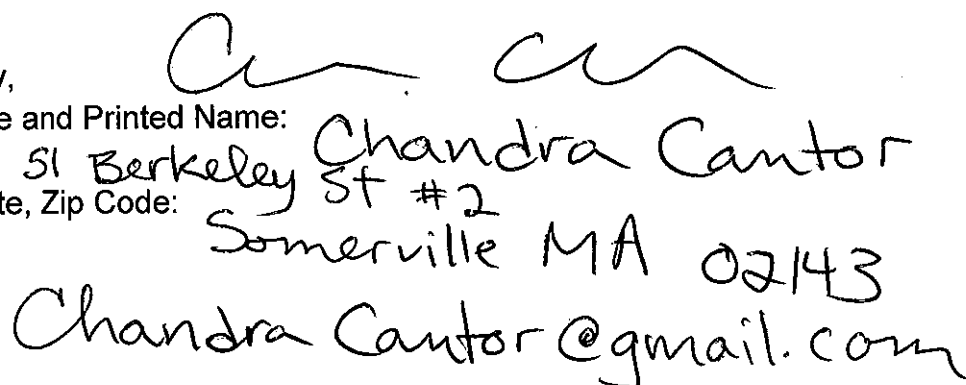 y,
e and Printed Name:
Chandra Cantor
51 Berkeley St #2
te, Zip Code:
Somerville MA 02143
Chandra Cantor@gmail.com